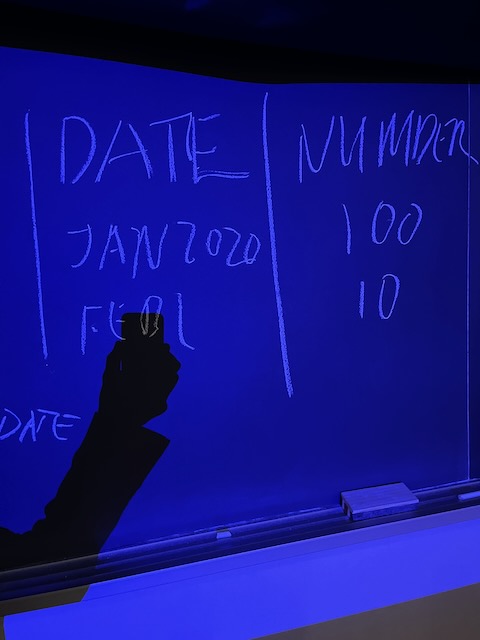 DATE NUMBER
JAN 2020 100
FEB 10
DATE